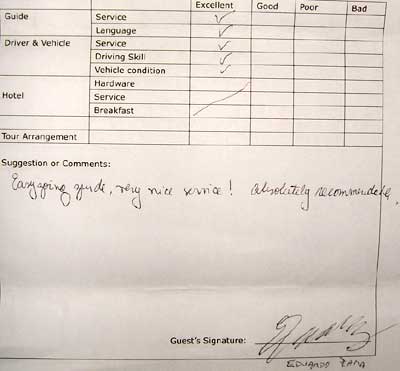 Excellent Good Poor Bad
Guide Service ✓
Language ✓
Driver & Vehicle Service ✓
Driving Skill ✓
Vehicle condition ✓
Hardware
Hotel Service
Breakfast
Tour Arrangement
Suggestion or Comments:
Easygoing guide, very nice service! Absolutely recommendable,
Guest's Signature:
EDUARDO